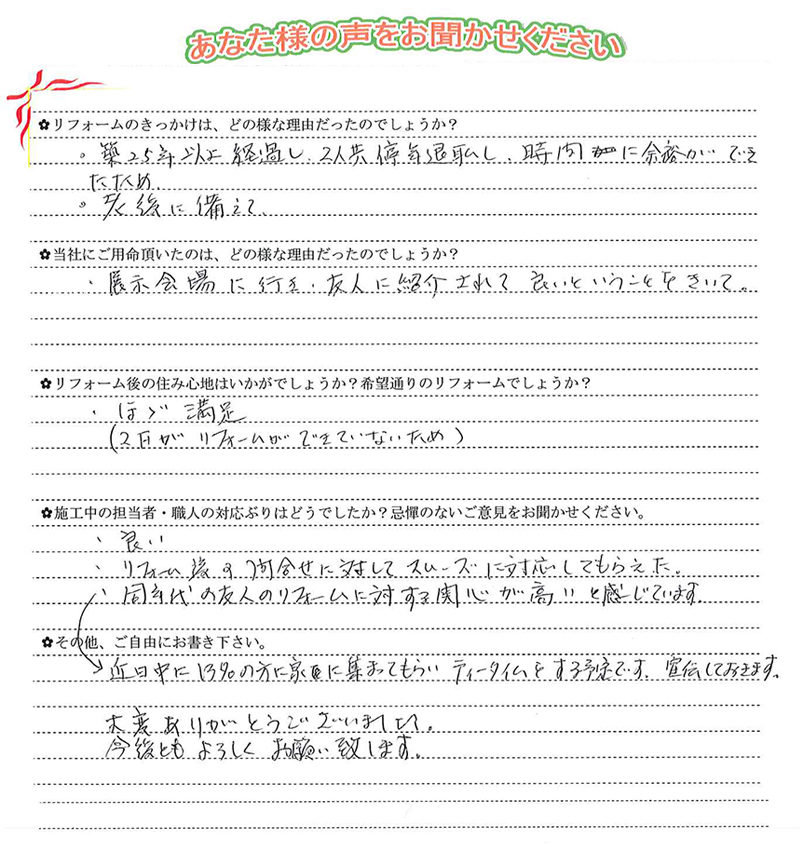 あなた様の声をお聞かせください
✿リフォームのきっかけは、どの様な理由だったのでしょうか？
。築25年以上経過し、2人共停年退職し、時間に余裕ができ
たため
。老後に備えて、
✿当社にご用命頂いたのは、どの様な理由だったのでしょうか？
・展示会場に行き、友人に紹介されて良いということをきいて。
✿リフォーム後の住み心地はいかがでしょうか？希望通りのリフォームでしょうか？
・ほゞ満足
(2Fがリフォームができていないため)
✿施工中の担当者・職人の対応ぶりはどうでしたか？忌憚のないご意見をお聞かせください。
・良い
・リフォーム後の問合せに対してスムーズに対応してもらえた。
・同年代の友人のリフォームに対する関心が高いと感じています。
✿その他、ご自由にお書き下さい。
近日中に13名の方に家に集まってもらいティータイムをする予定です。宣伝しておきます。
大変ありがとうございました。
今後ともよろしくお願い致します。